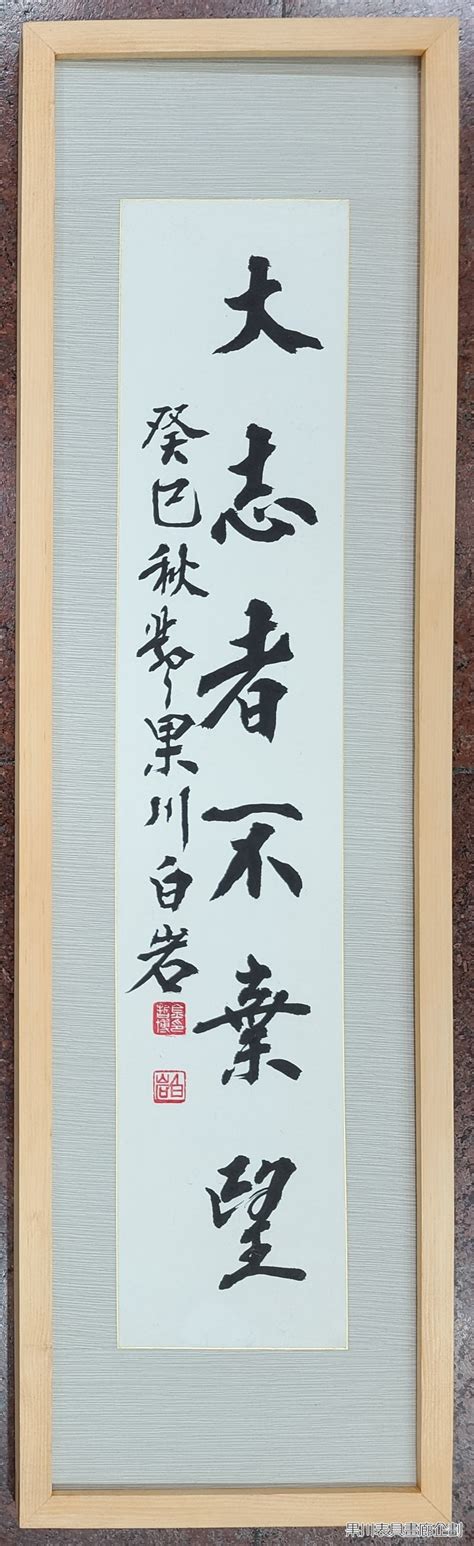 大志者不棄望
癸巳秋於果川白岩
白岩
果川表具畫廊企劃